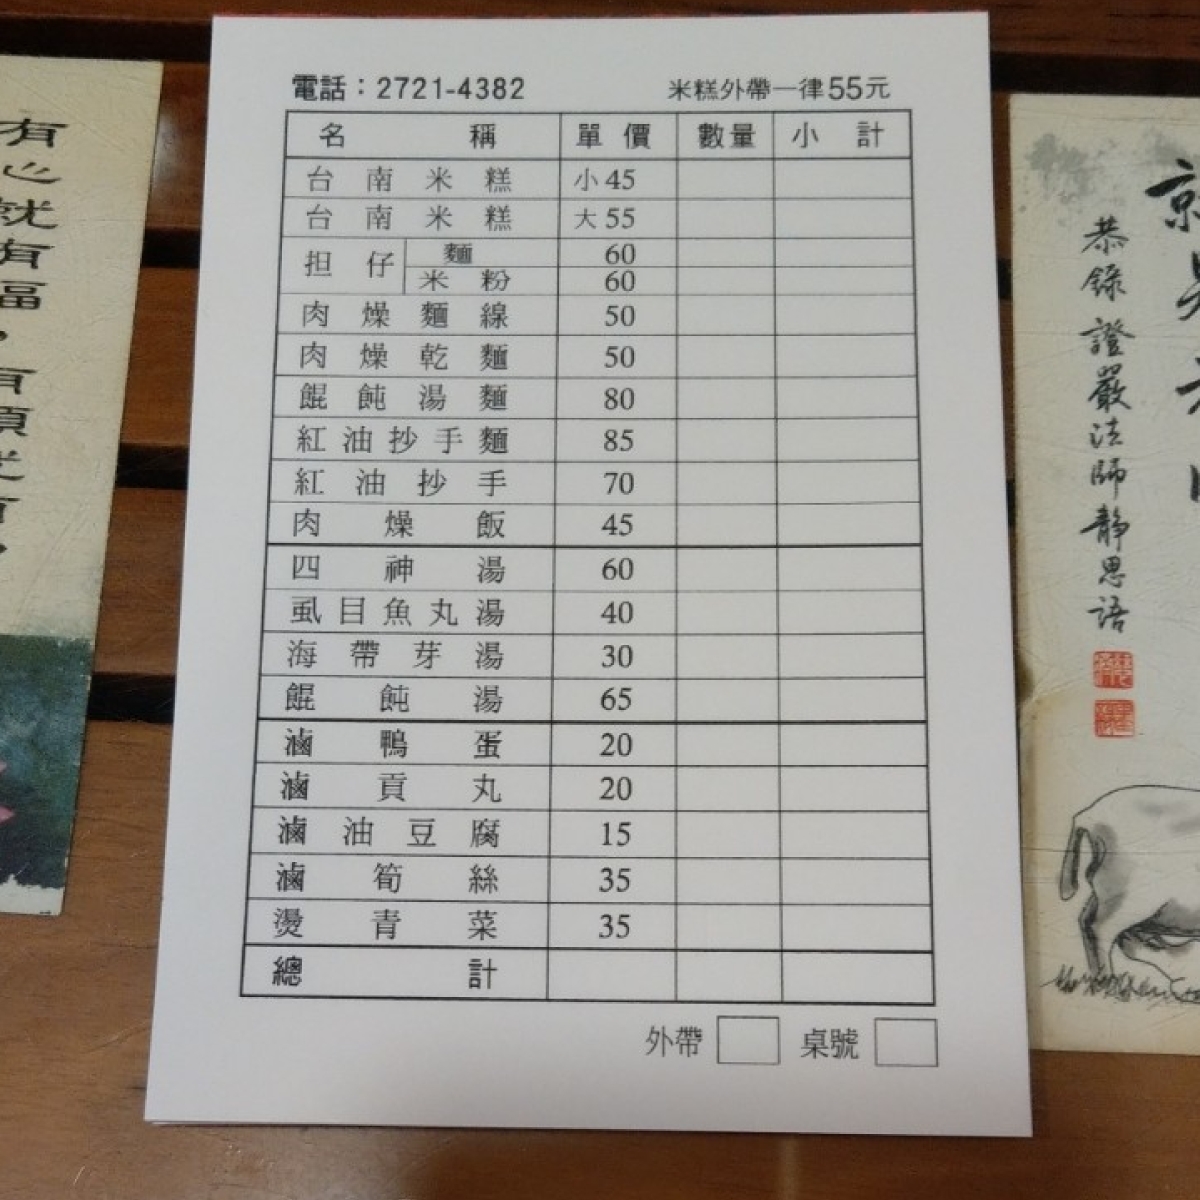 電話：2721-4382 米糕外帶一律55元
名稱 單價 數量 小計
台南米糕 小45
台南米糕 大55
担仔 麵 60
米粉 60
肉燥麵線 50
肉燥乾麵 50
餛飩湯麵 80
紅油抄手麵 85
紅油抄手 70
肉燥飯 45
四神湯 60
虱目魚丸湯 40
海帶芽湯 30
餛飩湯 65
滷鴨蛋 20
滷貢丸 20
滷油豆腐 15
滷筍絲 35
燙青菜 35
總計
外帶 桌號
有心就有福，有願就有，
恭錄證嚴法師靜思語